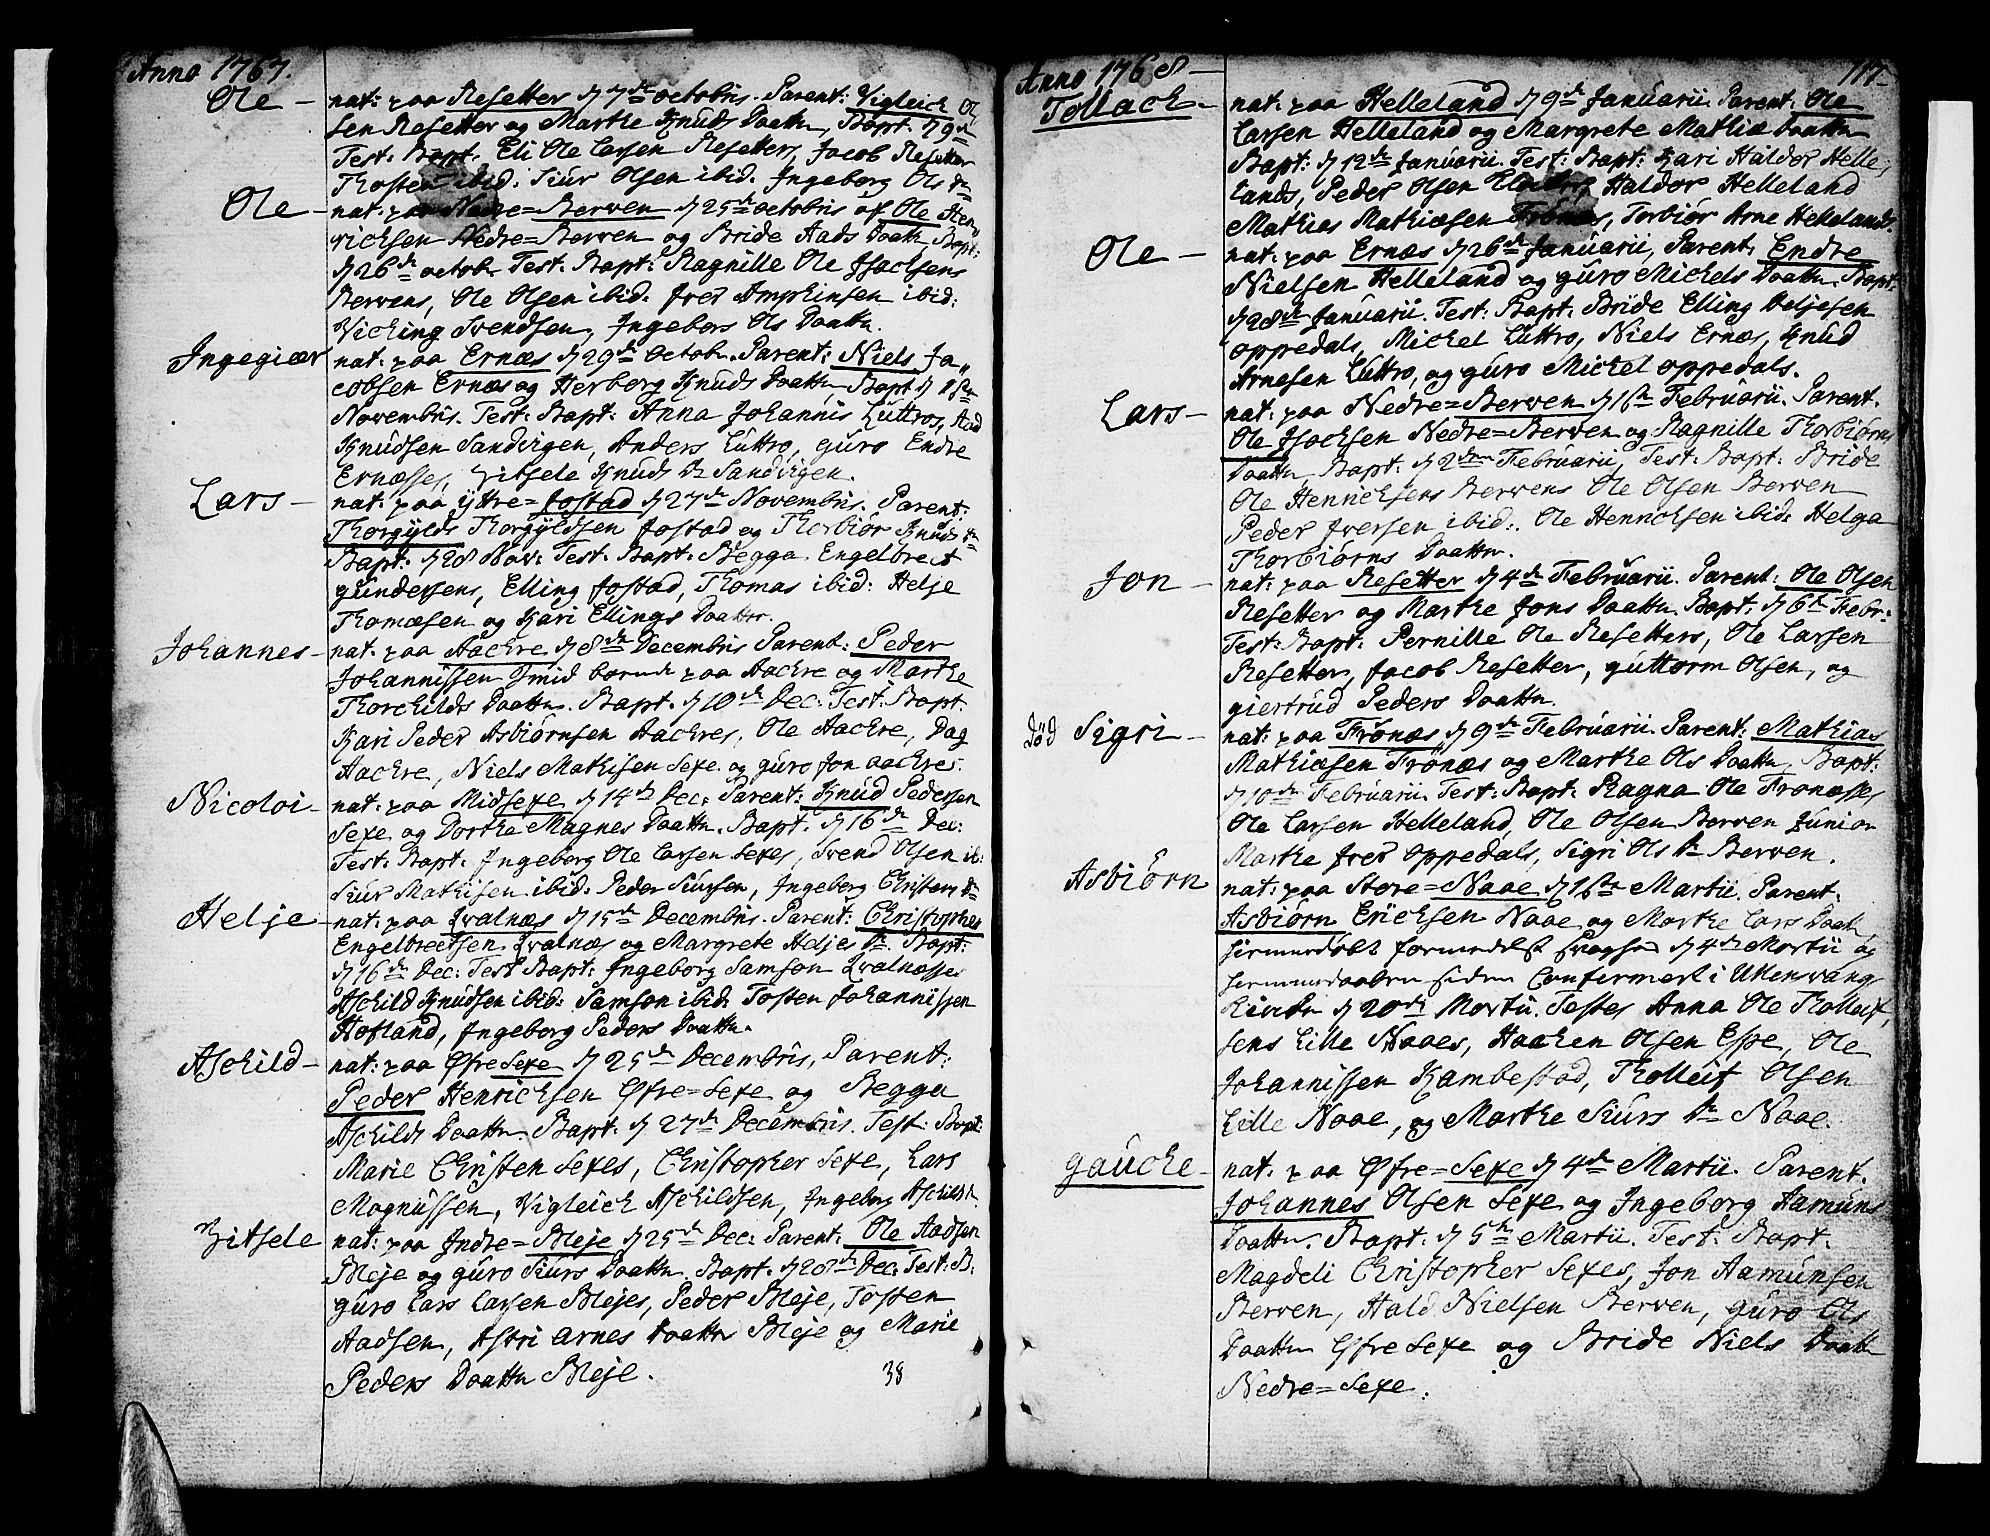 Anno 1767.
Ole – nat: paa Resetter d 7de octobris. Parent: Vigleich Ol,
sen Resetter og Marthe Knuds Daatter, Bapt. d 9de
Test: Bapt. Eli Ole Larsen Resetters, Jacob Resetter
Thosten ibid: Siur Olsen ibid. Ingeborg Ols dr
Ole – nat: paa Nedre=Berven d 25de octobris af Ole Hen
richsen Nedre=Berven og Bride Aads Daatter Bapt:
d 26de octob. Test: Bapt: Ragnille Ole Isachsens
Bervens, Ole Olsen ibid. Iver Amphinsen ibid:
Viching Svendsen, Ingebors Ols Daatter.
Ingegiær nat: paa Ernæs d 29de Octobr. Parent: Niels Ja,,
cobsen Ernæs og Herborg Knuds Daatter, Bapt d 1ste
Novembris. Test: Bapt: Anna Johannis Luttros, Aad
Knudsen Sandvigen, Anders Luttro, guro Endre
Ernæsses, Zitsele Knuds Dr Sandvigen.
Lars – nat: paa yttre=Jostad d 27de Novembris. Parent:
Thorgylds Thorgyldsen Jostad og Thorbiør Knuds dr
Bapt: d 28 Nov: Test: Bapt: Begga Engelbrect
gundersens, Elling Jostad, Thomas ibid: Helje
Thomæsen og Kari Ellings Daatter.
Johannes – nat: paa Aachre d 8de Decembris Parent: Peder
Johannissen Qmid paa Aachre og Marthe
Thorchilds Daatter. Bapt. d 10de Dec: Test: Bapt.
Kari Peder Asbiørnsen Aachres, Ole Aachre, Dag
Aachre, Niels Mathisen Sexe og guro Jon aachres.
Nicoloi – nat: paa Midsexe d 14de Dec: Parent: Knud Pedersen
Sexe og Dorthe Magnes Daatter. Bapt. d 16de Dec:
Test: Bapt: Ingeborg Ole Larsen Sexes, Svend Olsen ib:
Siur Mathisen ibid: Peder Siursen, Ingeborg Christens dr
Helje – nat: paa Qvalnæs d 15de Decembris. Parent: Christopher
Engelbrectsen Qvalnæs og Margrete Heljes Dr Bapt:
d 16de Dec: Test Bapt: Ingeborg Samson Qvalnæsses
Aschild Knudsen ibid: Samson ibid: Tosten Johannissen
Hofland, Ingeborg Peders Daatter.
Aschild – nat: paa Øfre Sexe d 25de Decembris, Parent:
Peder Henrichsen Øfre=Sexe og Begga
Aschilds Daatter. Bapt: d 27de Decembris. Test: Bapt:
Marie Christen Sexes, Christopher Sexe, Lars
Magnussen, Vigleich Aschildsen, Ingeborg Aschilds dr
Zitsele nat: paa Indre=Bleje d 25de Dec: Parent: Ole Aadsen
Bleje og guro Siurs Daatter. Bapt. d 28de Dec: Test: B:
guro Lars Larsen Blejes, Peder Bleje, Tosten
Aadsen, Astri Arnes Daatter Bleje og Marie
Peders Daatter Bleje. 38
Anno 1768 – 117.
Tollach – nat: paa Helleland d 9de Januarii. Parent: Ole
Larsen Helleland og Margrete Mathiæ Daatter
Bapt: d 12de Januarii. Test: Bapt: Kari Haldor Helle,
lands, Peder Olsen Haldor Helleland
Mathias Mathiæsen Frønæs, Torbiør Arne Hellelands.
Ole – nat: paa Ernæs d 26de Januarii, Parent: Endre
Nielsen Helleland og guro Michels Daatter Bapt:
d 28de Januarii. Test: Bapt: Bride Elling Heljesen
oppedals, Michel Luttro, Niels Ernæs, Knud
Arnesen Luttro, og guro Michel oppedals.
Lars – nat: paa Nedre=Berven d 1ste Februarii. Parent.
Ole Isachsen Nedre=Berven og Ragnille Thorbiørns
Daatter Bapt: d 2den Februarii, Test: Bapt: Bride
Ole Henrichsens Bervens Ole Olsen Berven
Peder Iversen ibid: Ole Henrichsen ibid: Helga
Thorbiørns Daatter.
Jon – nat: paa Resetter d 4de Februarii. Parent: Ole Olsen
Resetter og Marthe Jons Daatter. Bapt: d 6te Febr:
Test: Bapt: Pernille Ole Resetters, Ole Larsen
Resetter, Jacob Resetter, guttorm Olsen, og
giertrud Peders Daatter.
død Sigri – nat: paa Frønæs d 9de Februarii Parent: Mathias
Mathiæsen Frønæs og Marthe Ols Daatter. Bapt:
d 10de Februarii. Test: Bapt: Ragna Ole Frønæsses
Ole Larsen Helleland, Ole Olsen Berven Junior
Marthe Iver oppedals, Sigri Ols Dr Berven.
Asbiørn nat: paa Store=Naae d 1ste Martii. Parent.
Asbiørn Erichsen Naae og Marthe Lars Daatter
hiemmedøbt formedelst svaghed d 4de Martii og
hiemmedaaben siden Confirmert i Ullensvangs
Kirche d 20de Martii. Testes Anna Ole Tholleif,
sens Lille Naaes, Haachen Olsen Espe, Ole
Johannissen Kambestad, Tholleif Olsen
Lille Naae, og Marthe Siurs Dr Naae.
gaúche – nat: paa Øfre=Sexe d 4de Martii. Parent.
Johannes Olsen Sexe og Ingeborg Aamuns
Daatter. Bapt: d 5te Martii. Test: Bapt.
Magdeli Christopher Sexes, Jon Aamunsen
Berven, Hald Nielsen Berven, guro Ols
Daatter Øfre Sexe og Bride Niels Daatter
Nedre=Sexe.